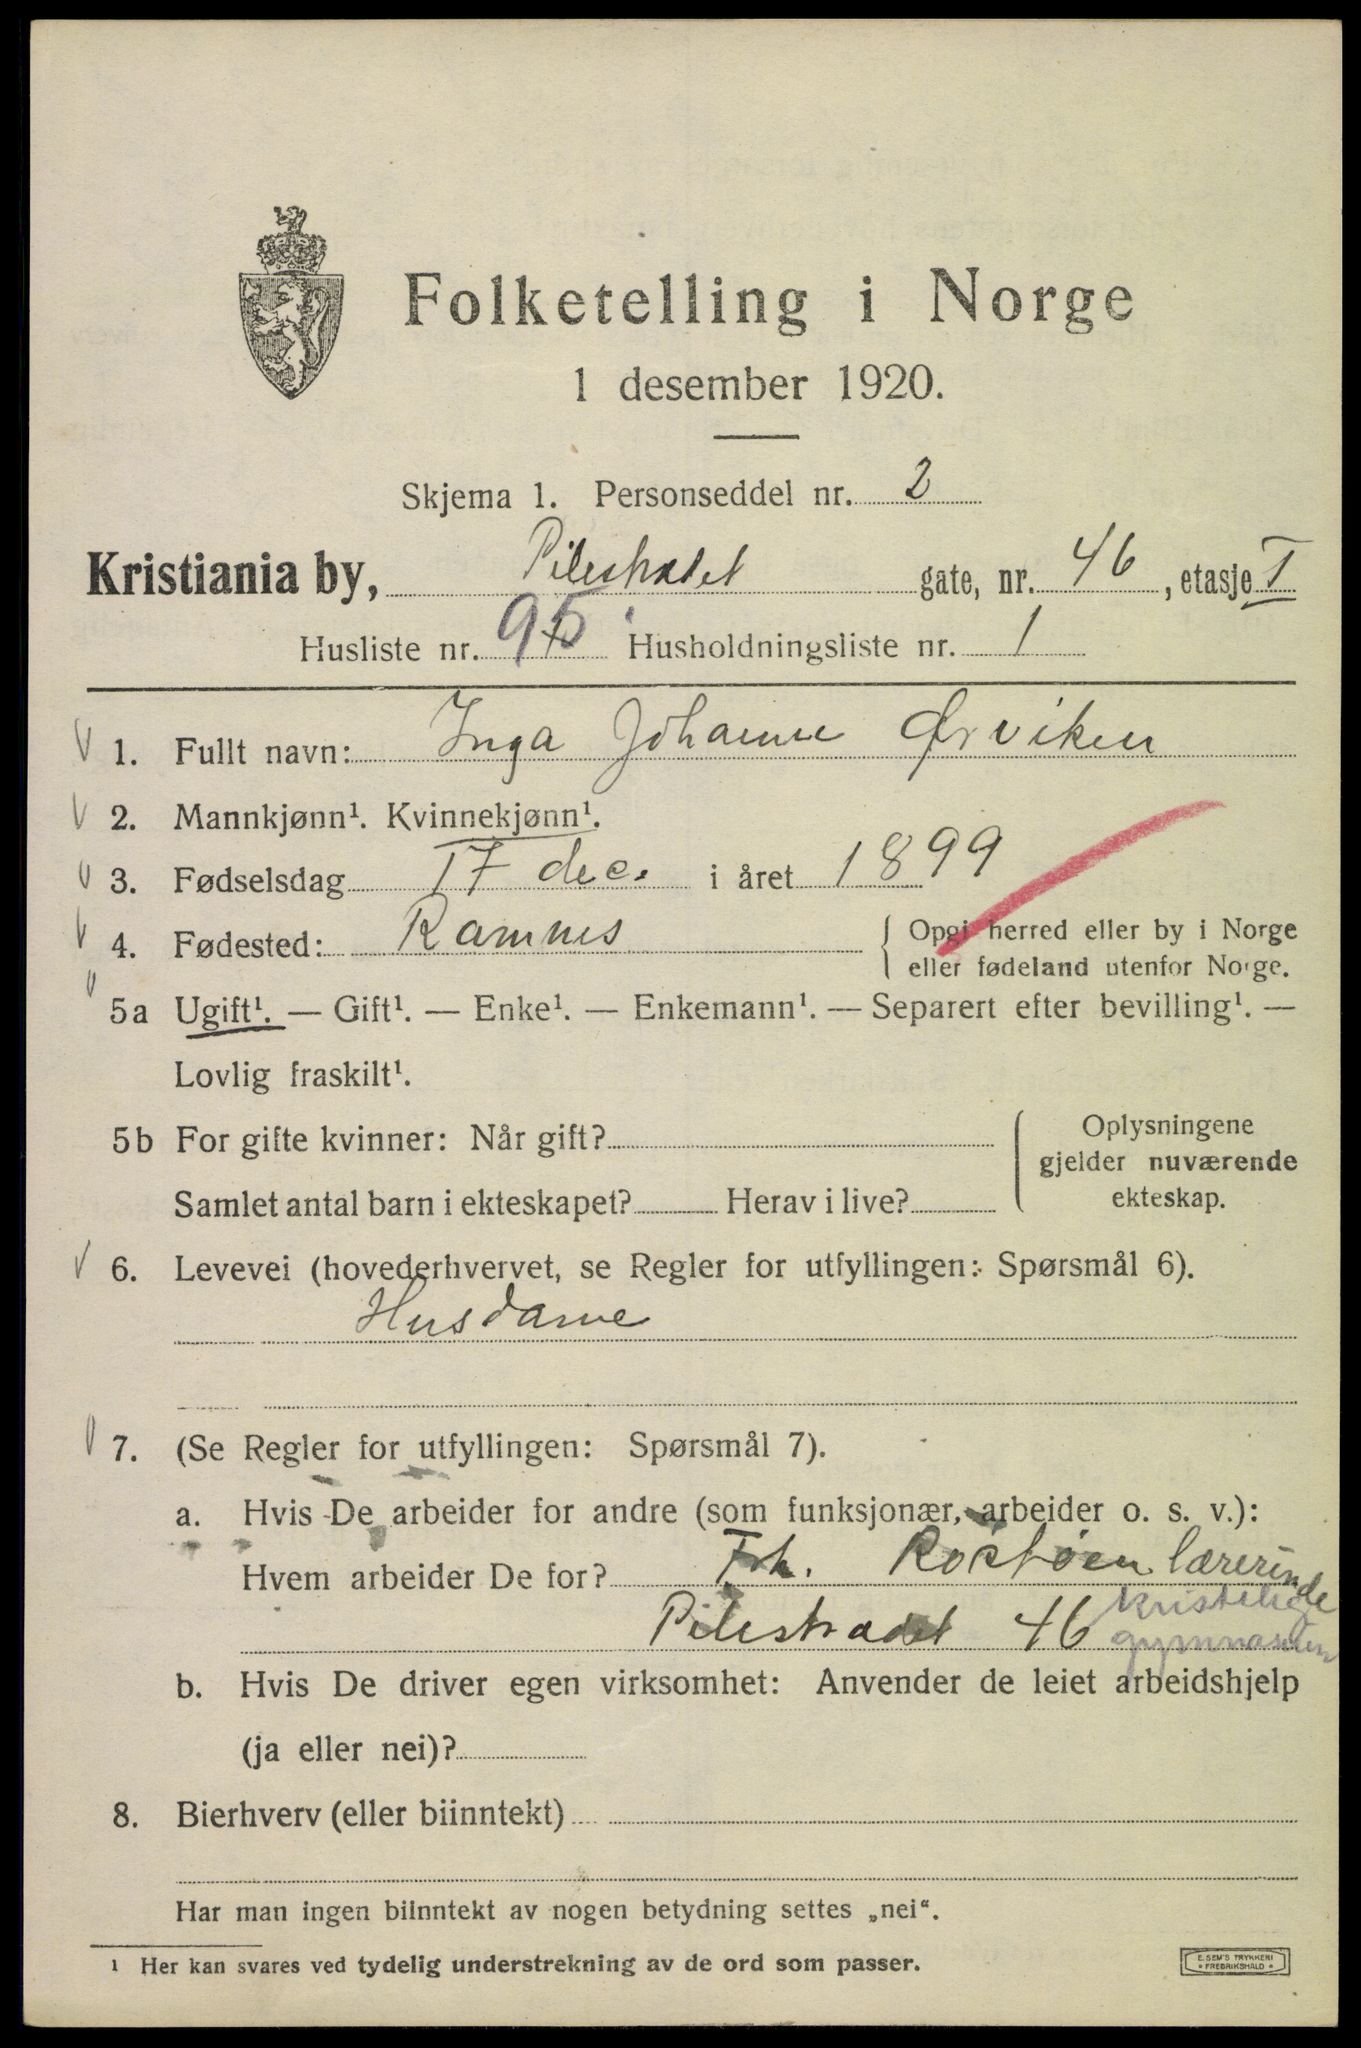 Folketelling i Norge
1 desember 1920.
Skjema 1. Personseddel nr. 2
Kristiania by, Pilestradet gate, nr. 46, etasje I
Husliste nr. 95 Husholdningsliste nr. 1
1. Fullt navn: Inga Johanne Ørviken
2. Mannkjønn¹. Kvinnekjønn¹.
3. Fødselsdag 17 dec. i året 1899
4. Fødested: Ramnes { Opgi herred eller by i Norge
eller fødeland utenfor Norge.
5a Ugift¹. — Gift¹. — Enke¹. — Enkemann¹. — Separert efter bevilling¹. —
Lovlig fraskilt¹.
5b For gifte kvinner: Når gift?
Samlet antal barn i ekteskapet? Herav i live?
{ Oplysningene
gjelder nuværende
ekteskap.
6. Levevei (hovederhvervet, se Regler for utfyllingen: Spørsmål 6).
Husdame
7. (Se Regler for utfyllingen: Spørsmål 7).
a. Hvis De arbeider for andre (som funksjonær, arbeider o. s. v.):
Hvem arbeider De for? Frk. Rostøen lærerinde
Pilestradet 46 kristelige
gymnasium
b. Hvis De driver egen virksomhet: Anvender de leiet arbeidshjelp
(ja eller nei)?
8. Bierhverv (eller biinntekt)
Har man ingen biinntekt av nogen betydning settes „nei“.
¹ Her kan svares ved tydelig understrekning av de ord som passer.
E. SEM'S TRYKKERI
• FREDRIKSHALD •